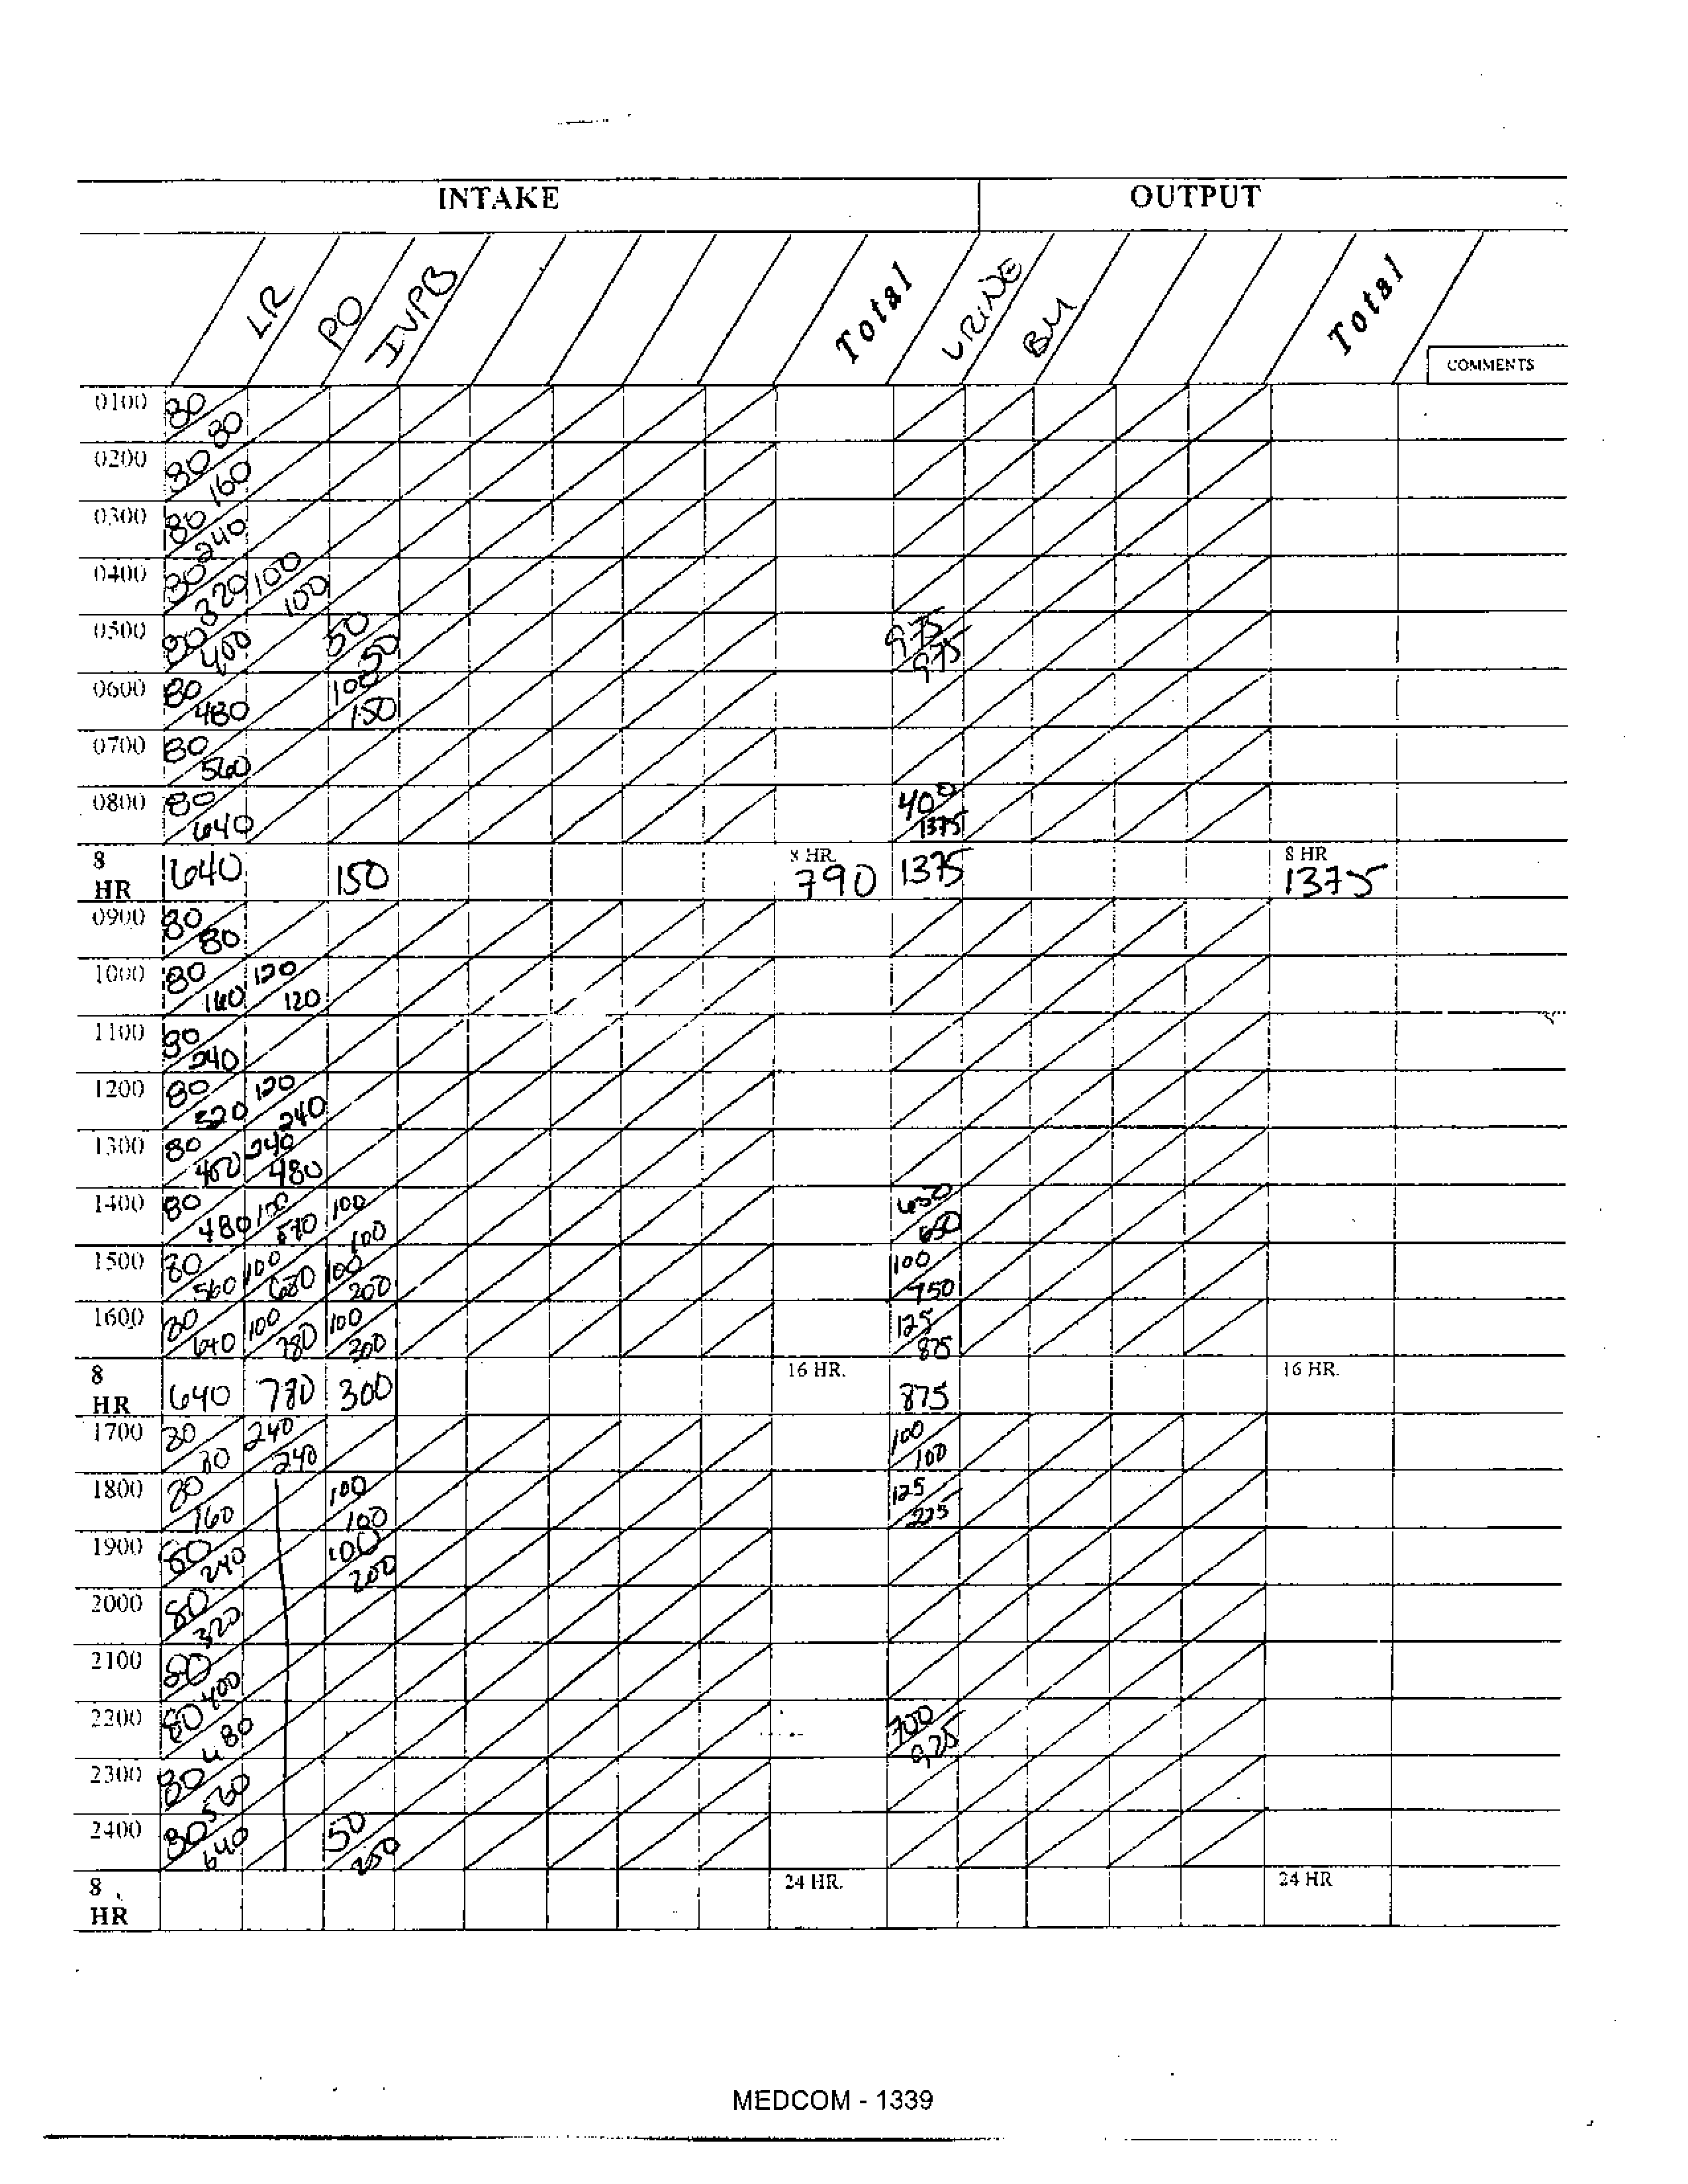 INTAKE OUTPUT
LR PO IVPB Total URINE BM Total COMMENTS
0100 80 80
0200 80 160
0300 80 240
0400 80 320 100 100
0500 80 400 50 50 975 975
0600 80 480 100 150
0700 80 560
0800 80 640 400 1375
8 HR 640 150 8 HR. 790 1375 8 HR 1375
0900 80 80
1000 80 160 120 120
1100 80 240
1200 80 320 120 240
1300 80 400 240 480
1400 80 480 100 580 100 100 650 650
1500 80 560 100 680 100 200 100 750
1600 80 640 100 780 100 300 125 875
8 HR 640 780 300 16 HR. 875 16 HR.
1700 80 80 240 240 100 100
1800 80 160 100 100 125 225
1900 80 240 100 200
2000 80 320
2100 80 400
2200 80 480 700 925
2300 80 560
2400 80 640 50 250
8 HR 24 HR. 24 HR
MEDCOM - 1339